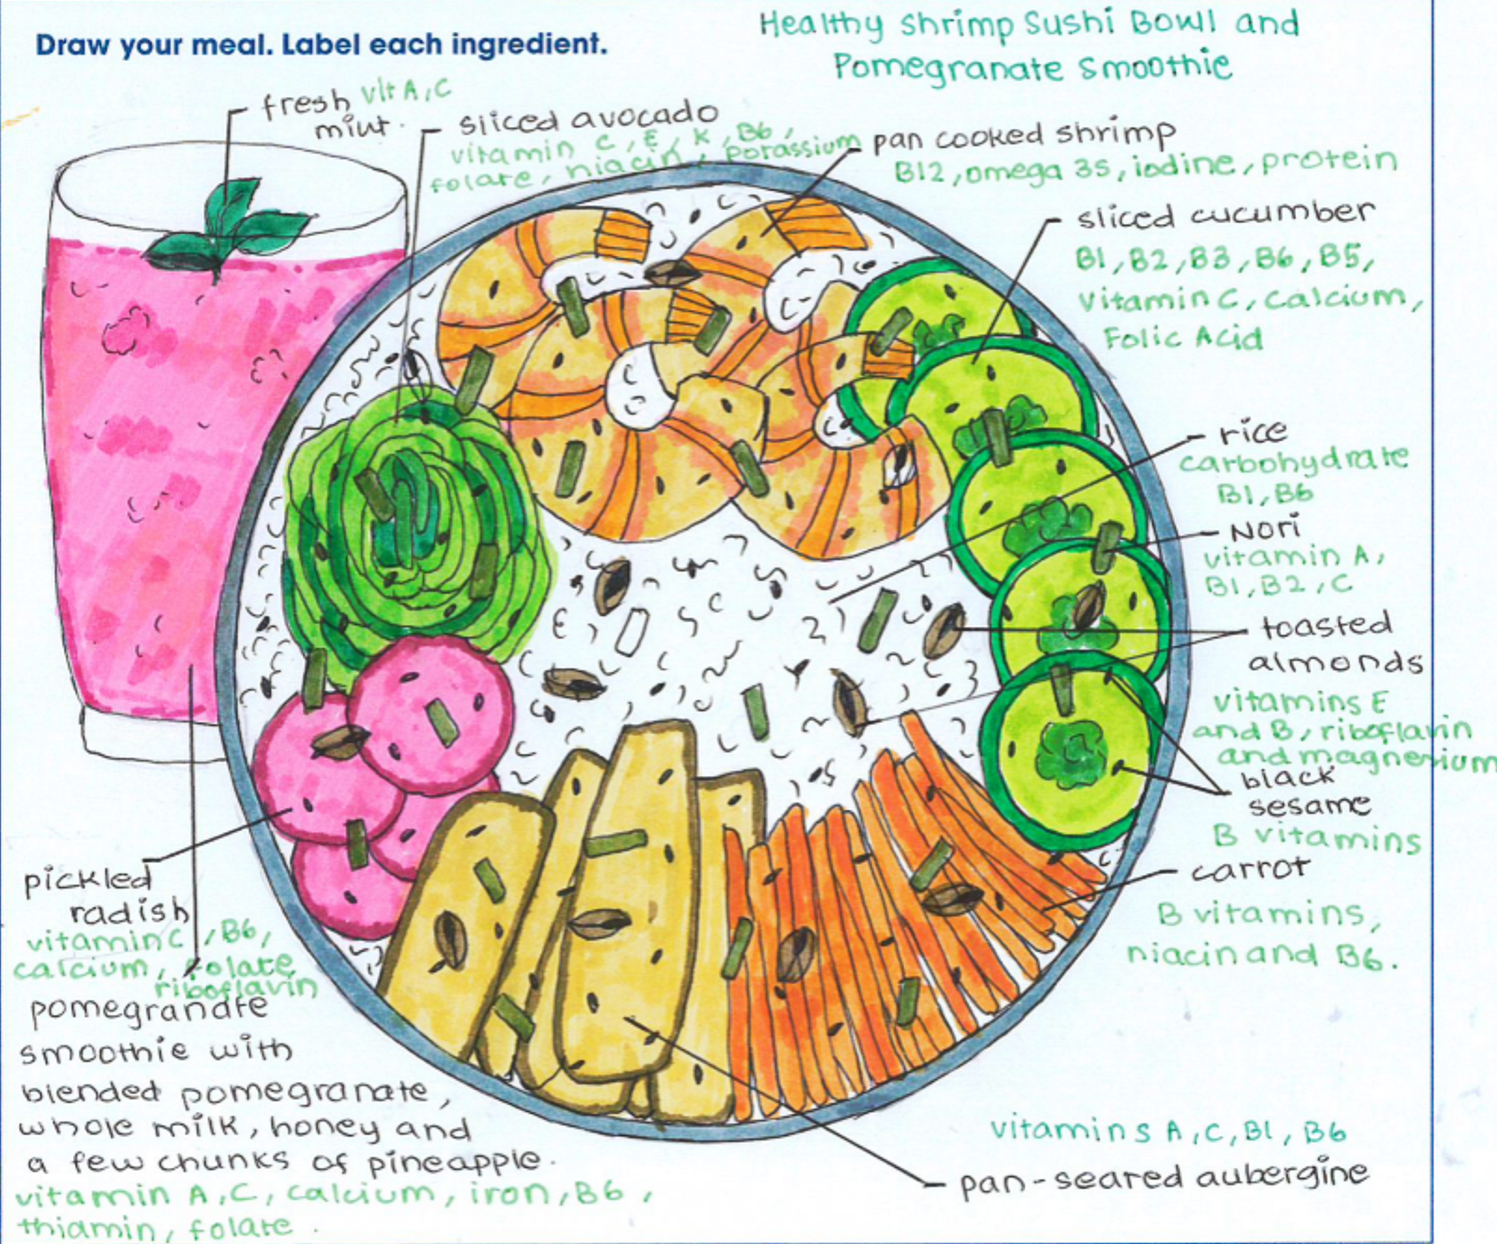 Draw your meal. Label each ingredient.
Healthy Shrimp Sushi Bowl and
Pomegranate Smoothie
fresh vit A, C
mint.
sliced avocado
vitamin C, E, K, B6,
folate, niacin, potassium
pan cooked shrimp
B12, omega 3s, iodine, protein
sliced cucumber
B1, B2, B3, B6, B5,
vitamin C, calcium,
Folic Acid
rice
carbohydrate
B1, B6
Nori
vitamin A,
B1, B2, C
toasted
almonds
vitamins E
and B, riboflavin
and magnesium
black
sesame
B vitamins
carrot
B vitamins,
niacin and B6.
pickled
radish
vitamin C, B6,
calcium, folate,
riboflavin
pomegranate
smoothie with
blended pomegranate,
whole milk, honey and
a few chunks of pineapple.
vitamin A, C, calcium, iron, B6,
thiamin, folate.
vitamins A, C, B1, B6
pan-seared aubergine